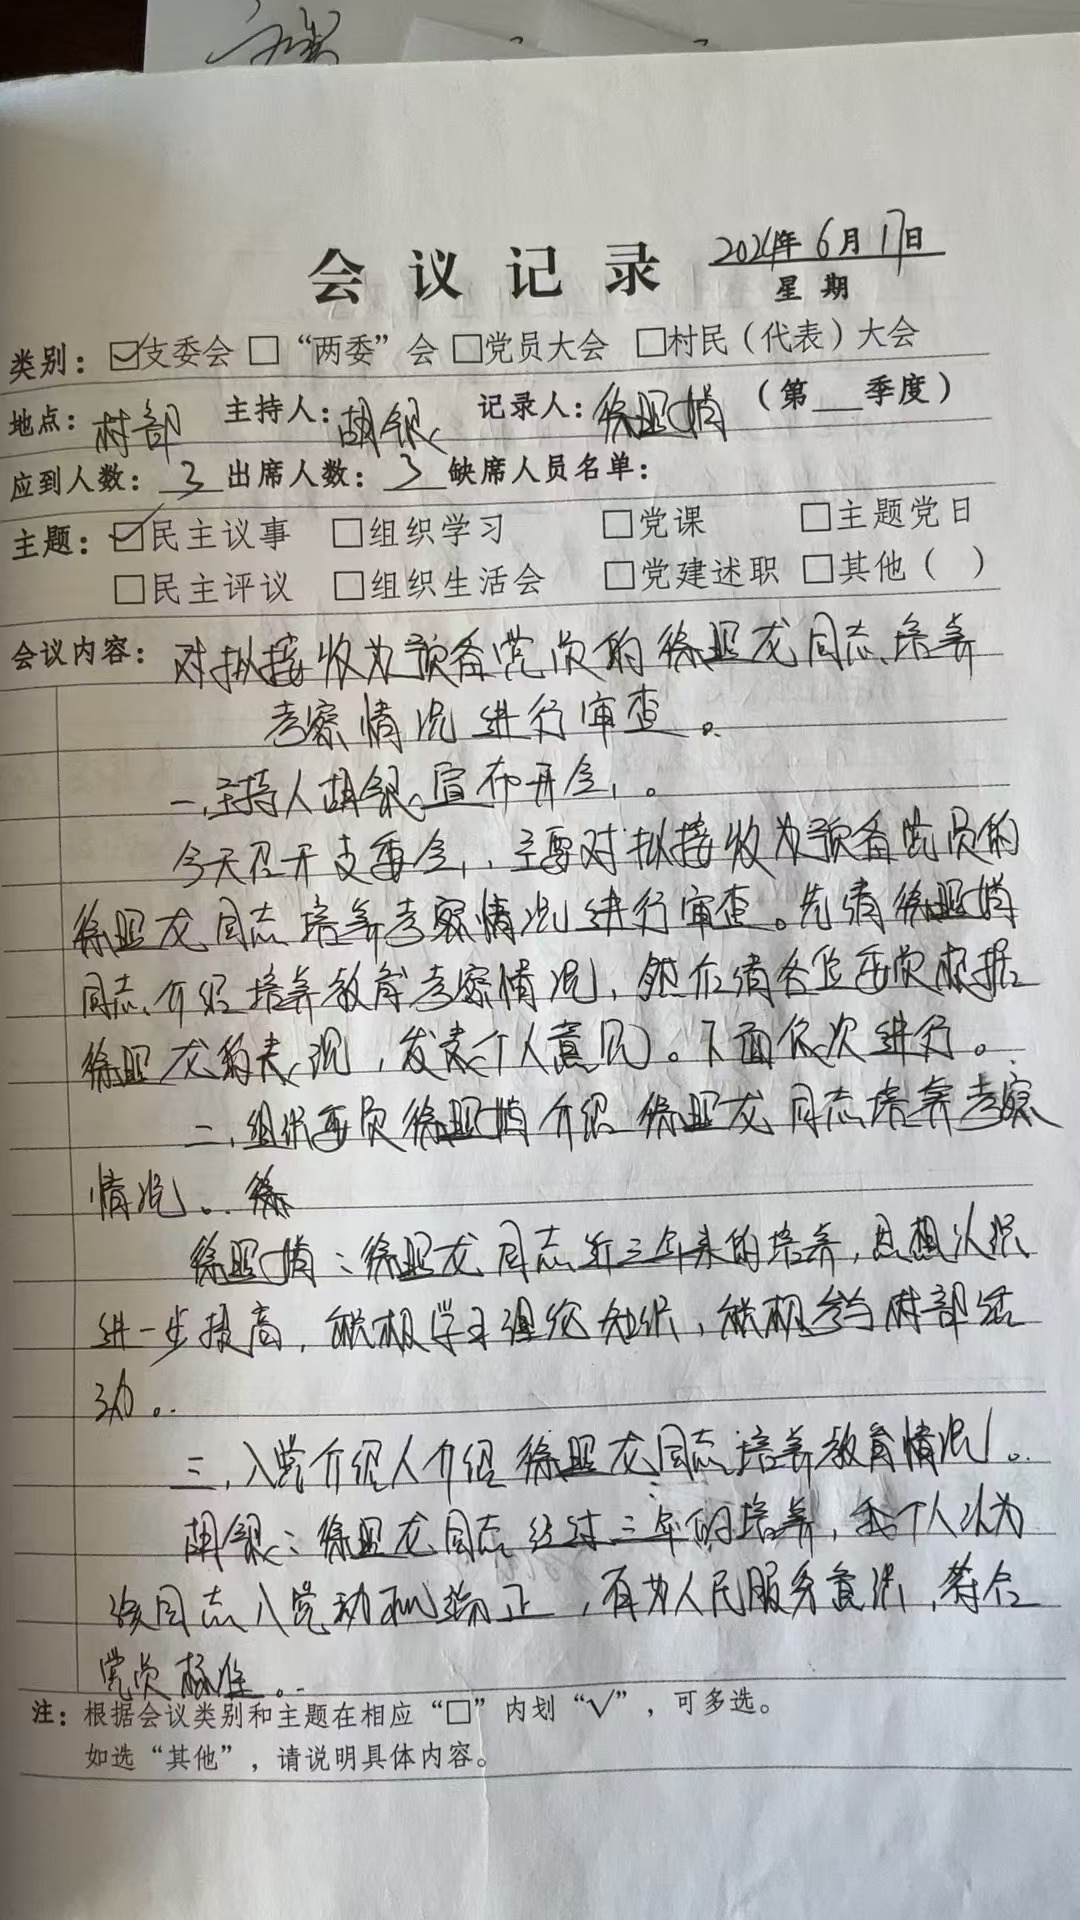 会议记录 2024年6月17日
星期
类别：☑支委会 □“两委”会 □党员大会 □村民（代表）大会
地点：村部 主持人：胡银 记录人：徐昭娟 （第 季度）
应到人数：3 出席人数：3 缺席人员名单：
主题：☑民主议事 □组织学习 □党课 □主题党日
□民主评议 □组织生活会 □党建述职 □其他（ ）
会议内容：对拟接收为预备党员的徐昭龙同志培养
考察情况进行审查。
一、主持人胡银宣布开会。
今天召开支委会，主要对拟接收为预备党员的
徐昭龙同志培养考察情况进行审查。先请徐昭娟
同志介绍培养教育考察情况，然后请各位委员根据
徐昭龙的表现，发表个人意见。下面依次进行。
二、组织委员徐昭娟介绍徐昭龙同志培养考察
情况。徐
徐昭娟：徐昭龙同志近三年来的培养，思想认识
进一步提高，积极学习理论知识，积极参与村部活
动。
三、入党介绍人介绍徐昭龙同志培养教育情况。
胡银：徐昭龙同志经过三年的培养，我个人认为
该同志入党动机端正，有为人民服务意识，符合
党员标准。
注：根据会议类别和主题在相应“□”内划“√”，可多选。
如选“其他”，请说明具体内容。